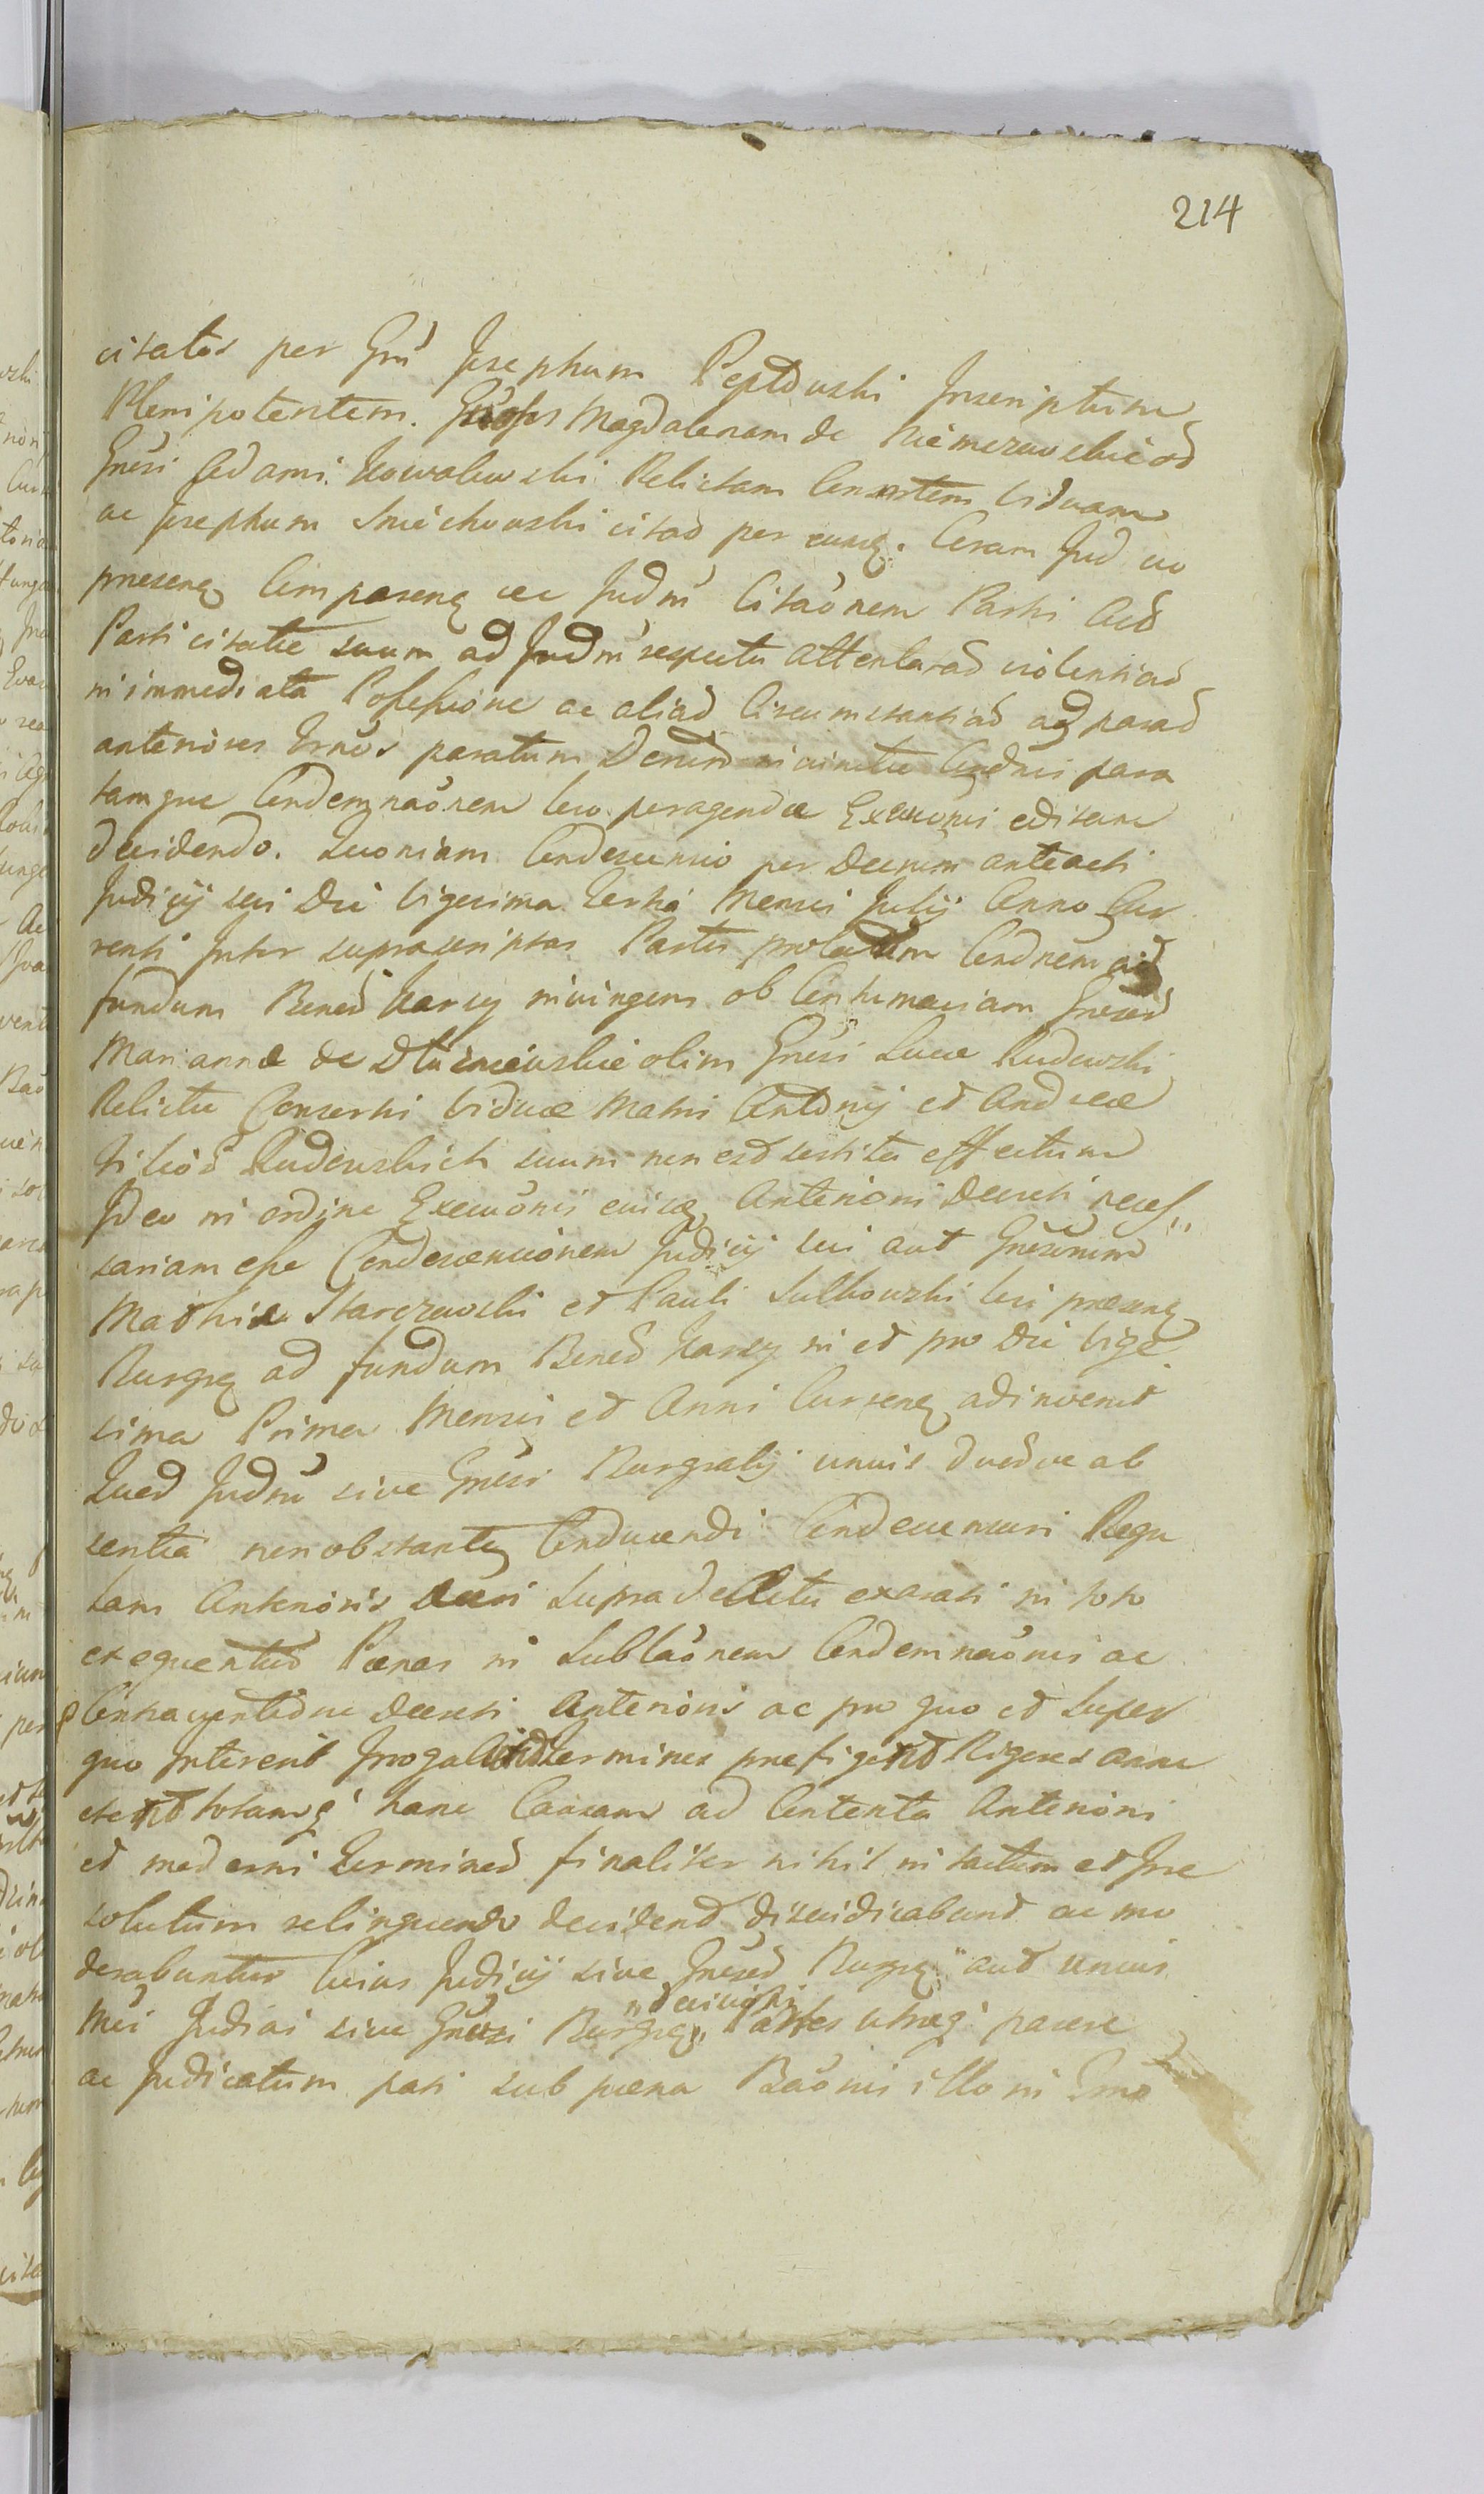 214
citatos per Gnu Josephum Peptowski Inscriptum
Plenipotentem. Gnosos Magdalenam de Niemerowskie od
Gnosi Adami Kowalewski Relictam Consortem Viduam
ac Josephum Sniechowski citad per eunq. Coram Jud
presenq Comparenq ac Judm Citaonem Parti Act
Parti citatae suum ad Judm respectu attentatad violentiad
in immediata Possessione ac aliad Circumstantiad adparad
anteriores Trnos paratum in vim Condnis para
tamque Condemnaonem loco peragendae Exeuonis editam
decidendo. Quoniam Condescensio per Decrum anteacti
Judicij sui Die Vigesima Tertia Mensis Julij Anno Cur
renti Inter suprascriptas Partes prolatum Condnem ad
fundum Bened Karcy invingens ob Contumaciam Gnosd
Mariannae de olim Gnosi Lucae Rudowski
Relictae Consorti Viduae Matri Antonij et Andreae
filiod Rudowskich suum non est sortita effectum
Ideo in ordine Exeuonis eiusq Anteriori Decreti neces"
sariam esse Condescensionem Judicij sui aut Gnosorum
Mathiae Skarzewski et Pauli Sulkowski sui presenq
Burgrq ad fundum Bened Karcy in et pro die Vige
sima Prima Mensis et Anni Currenq adinvenit
Quod Judm sive Gnosi Burgrabij unius duodve ab
sentia non obstanteq Conducendi Condescensuri Regu
lam Anterioris Decri Supra de Actu exarati in toto
exequentud Paenas in Sublaonem Condemnaonis ac
Contraventidue Decreti Anterioris ac pro quo et super
quo Intererit Irrogabund Terminos prefigend Rigores anne
ctend totamq hanc Causam ad Contenta Anterioris
et moderni Terminod finaliter nihil in tactum et Irre
solutum relinquendo decidend diiudicabunt ac mo
derabuntur Cuius Judicij sive Gnosod Burgrq" aut unius
"decisioni
Mei Judici sive Gnosi Burgrq" Partes utraeq parere
ac Judicatum pati sub paena Baonis illo ni Trno